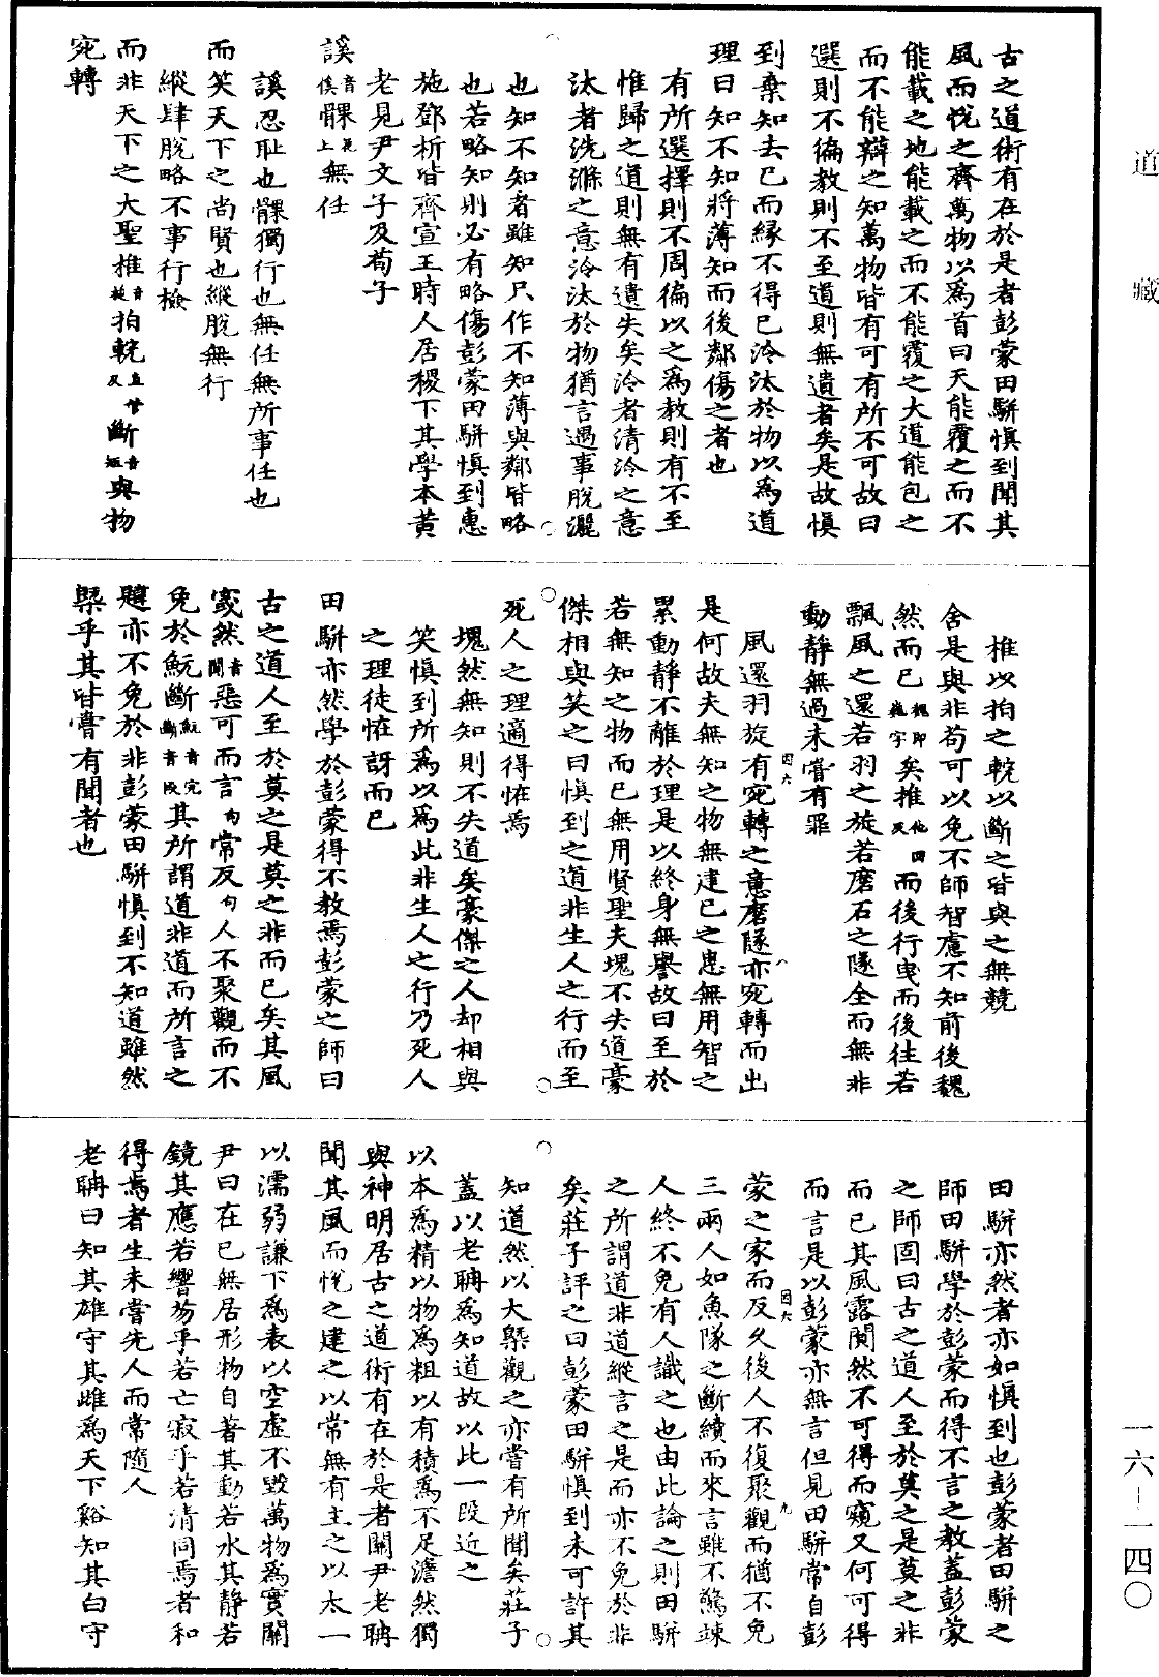 道藏
古之道術有在於是者彭蒙田駢慎到聞其
風而悅之齊萬物以為首曰天能覆之而不
能載之地能載之而不能覆之大道能包之
而不能辯之知萬物皆有可有所不可故曰
選則不徧教則不至道則無遺者矣是故慎
到棄知去已而緣不得已泠汰於物以為道
理曰知不知將薄知而後鄰傷之者也
有所選擇則不周徧以之為教則有不至
惟歸之道則無有遺失矣泠者清泠之意
汰者洗滌之意泠汰於物猶言遇事脫灑
也知不知者雖知只作不知薄與鄰皆略
也若略知則必有略傷彭蒙田駢慎到惠
施鄧析皆齊宣王時人居稷下其學本黃
老見尹文子及荀子
謑音傒髁上無任
謑忍耻也髁獨行也無任無所事任也
而笑天下之尚賢也縱脫無行
縱肆脫略不事行檢
而非天下之大聖椎音拍輐反斷音與物
宛轉
椎以拍之輐以斷之皆與之無競
舍是與非苟可以免不師智慮不知前後魏
然而已魏即巍字矣推他回反而後行曵而後往若
飄風之還若羽之旋若磨石之隧全而無非
動靜無過未嘗有罪
風還羽旋有宛轉之意磨隧亦宛轉而出
是何故夫無知之物無建已之患無用智之
累動靜不離於理是以終身無譽故曰至於
若無知之物而已無用賢聖夫塊不失道豪
傑相與笑之曰慎到之道非生人之行而至
死人之理適得恠焉
塊然無知則不失道矣豪傑之人却相與
笑慎到所為以為此非生人之行乃死人
之理徒恠訝而已
田駢亦然學於彭蒙得不教焉彭蒙之師曰
古之道人至於莫之是莫之非而已矣其風
窢然音閴惡可而言句常反句人不聚觀而不
免於魭斷魭音完斷音段其所謂道非道而所言之
韙亦不免於非彭蒙田駢慎到不知道雖然
槩乎其皆嘗有聞者也
田駢亦然者亦如慎到也彭蒙者田駢之
師田駢學於彭蒙而得不言之教蓋彭蒙
之師固曰古之道人至於莫之是莫之非
而已其風露閴然不可得而窺又何可得
而言是以彭蒙亦無言但見田駢常自彭
蒙之家而反久後人不復聚觀而猶不免
三兩人如魚隊之斷續而來言雖不驚竦
人終不免有人識之也由此論之則田駢
之所謂道非道縱言之是而亦不免於非
矣莊子評之曰彭蒙田駢慎到未可許其
知道然以大槩觀之亦嘗有所聞矣莊子
蓋以老聃為知道故以此一段近之
以本為精以物為粗以有積為不足澹然獨
與神明居古之道術有在於是者關尹老聃
聞其風而悅之建之以常無有主之以太一
以濡弱謙下為表以空虛不毀萬物為實關
尹曰在已無居形物自著其動若水其靜若
鏡其應若響芴乎若亡寂乎若清同焉者和
得焉者生未嘗先人而常隨人
老聃曰知其雄守其雌為天下谿知其白守
一六-一四〇